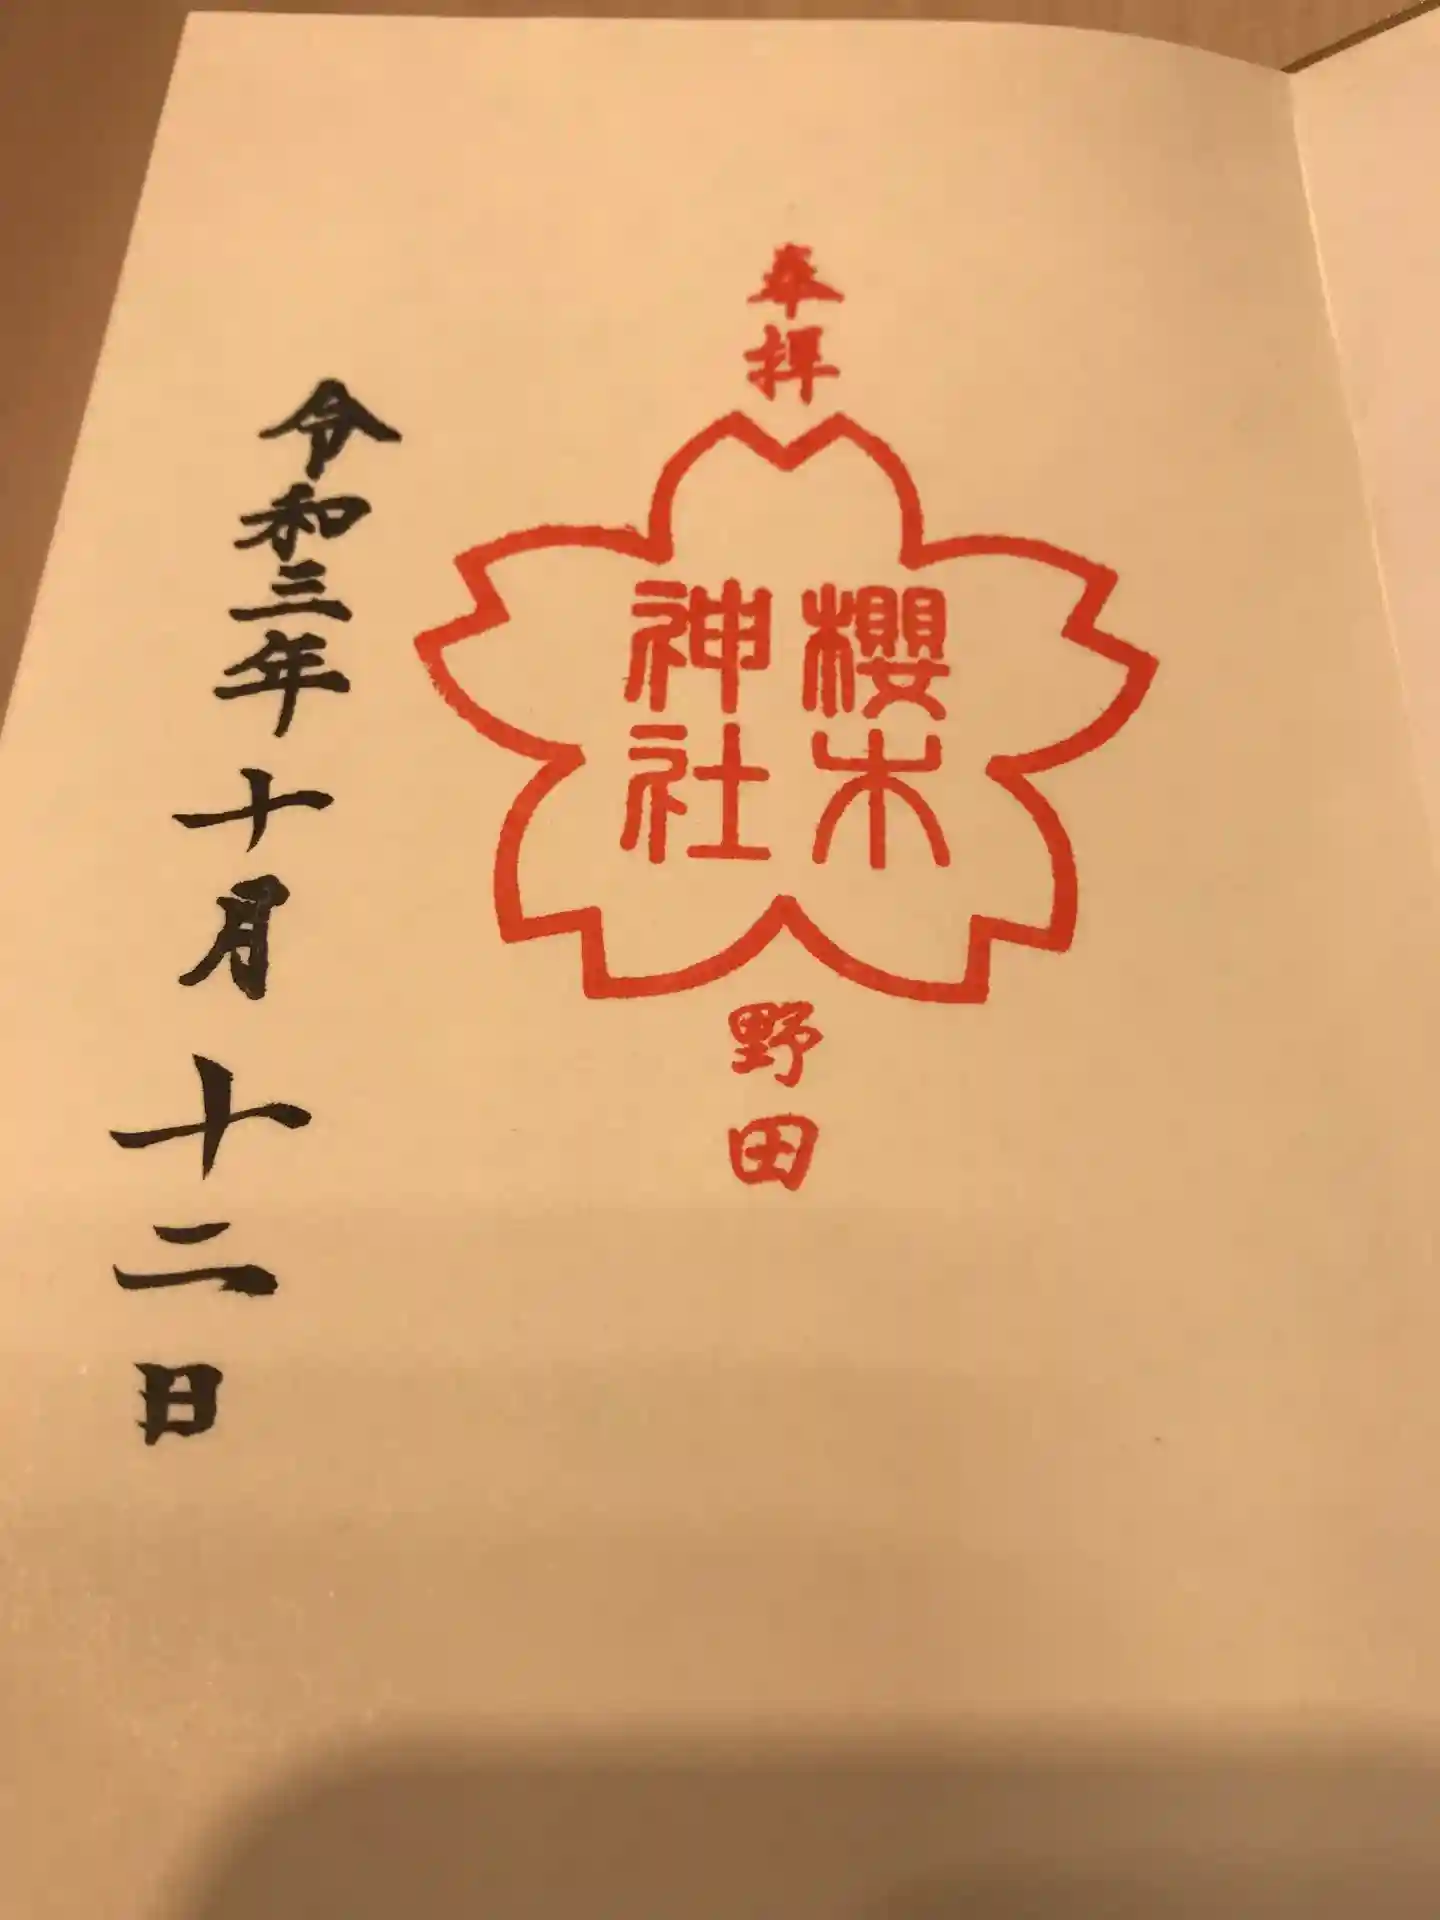 奉拝
櫻木
神社
野田
令和三年十月十二日